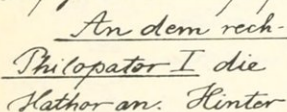 An dem rech-
Philopator I die
Hathor an. Hinter